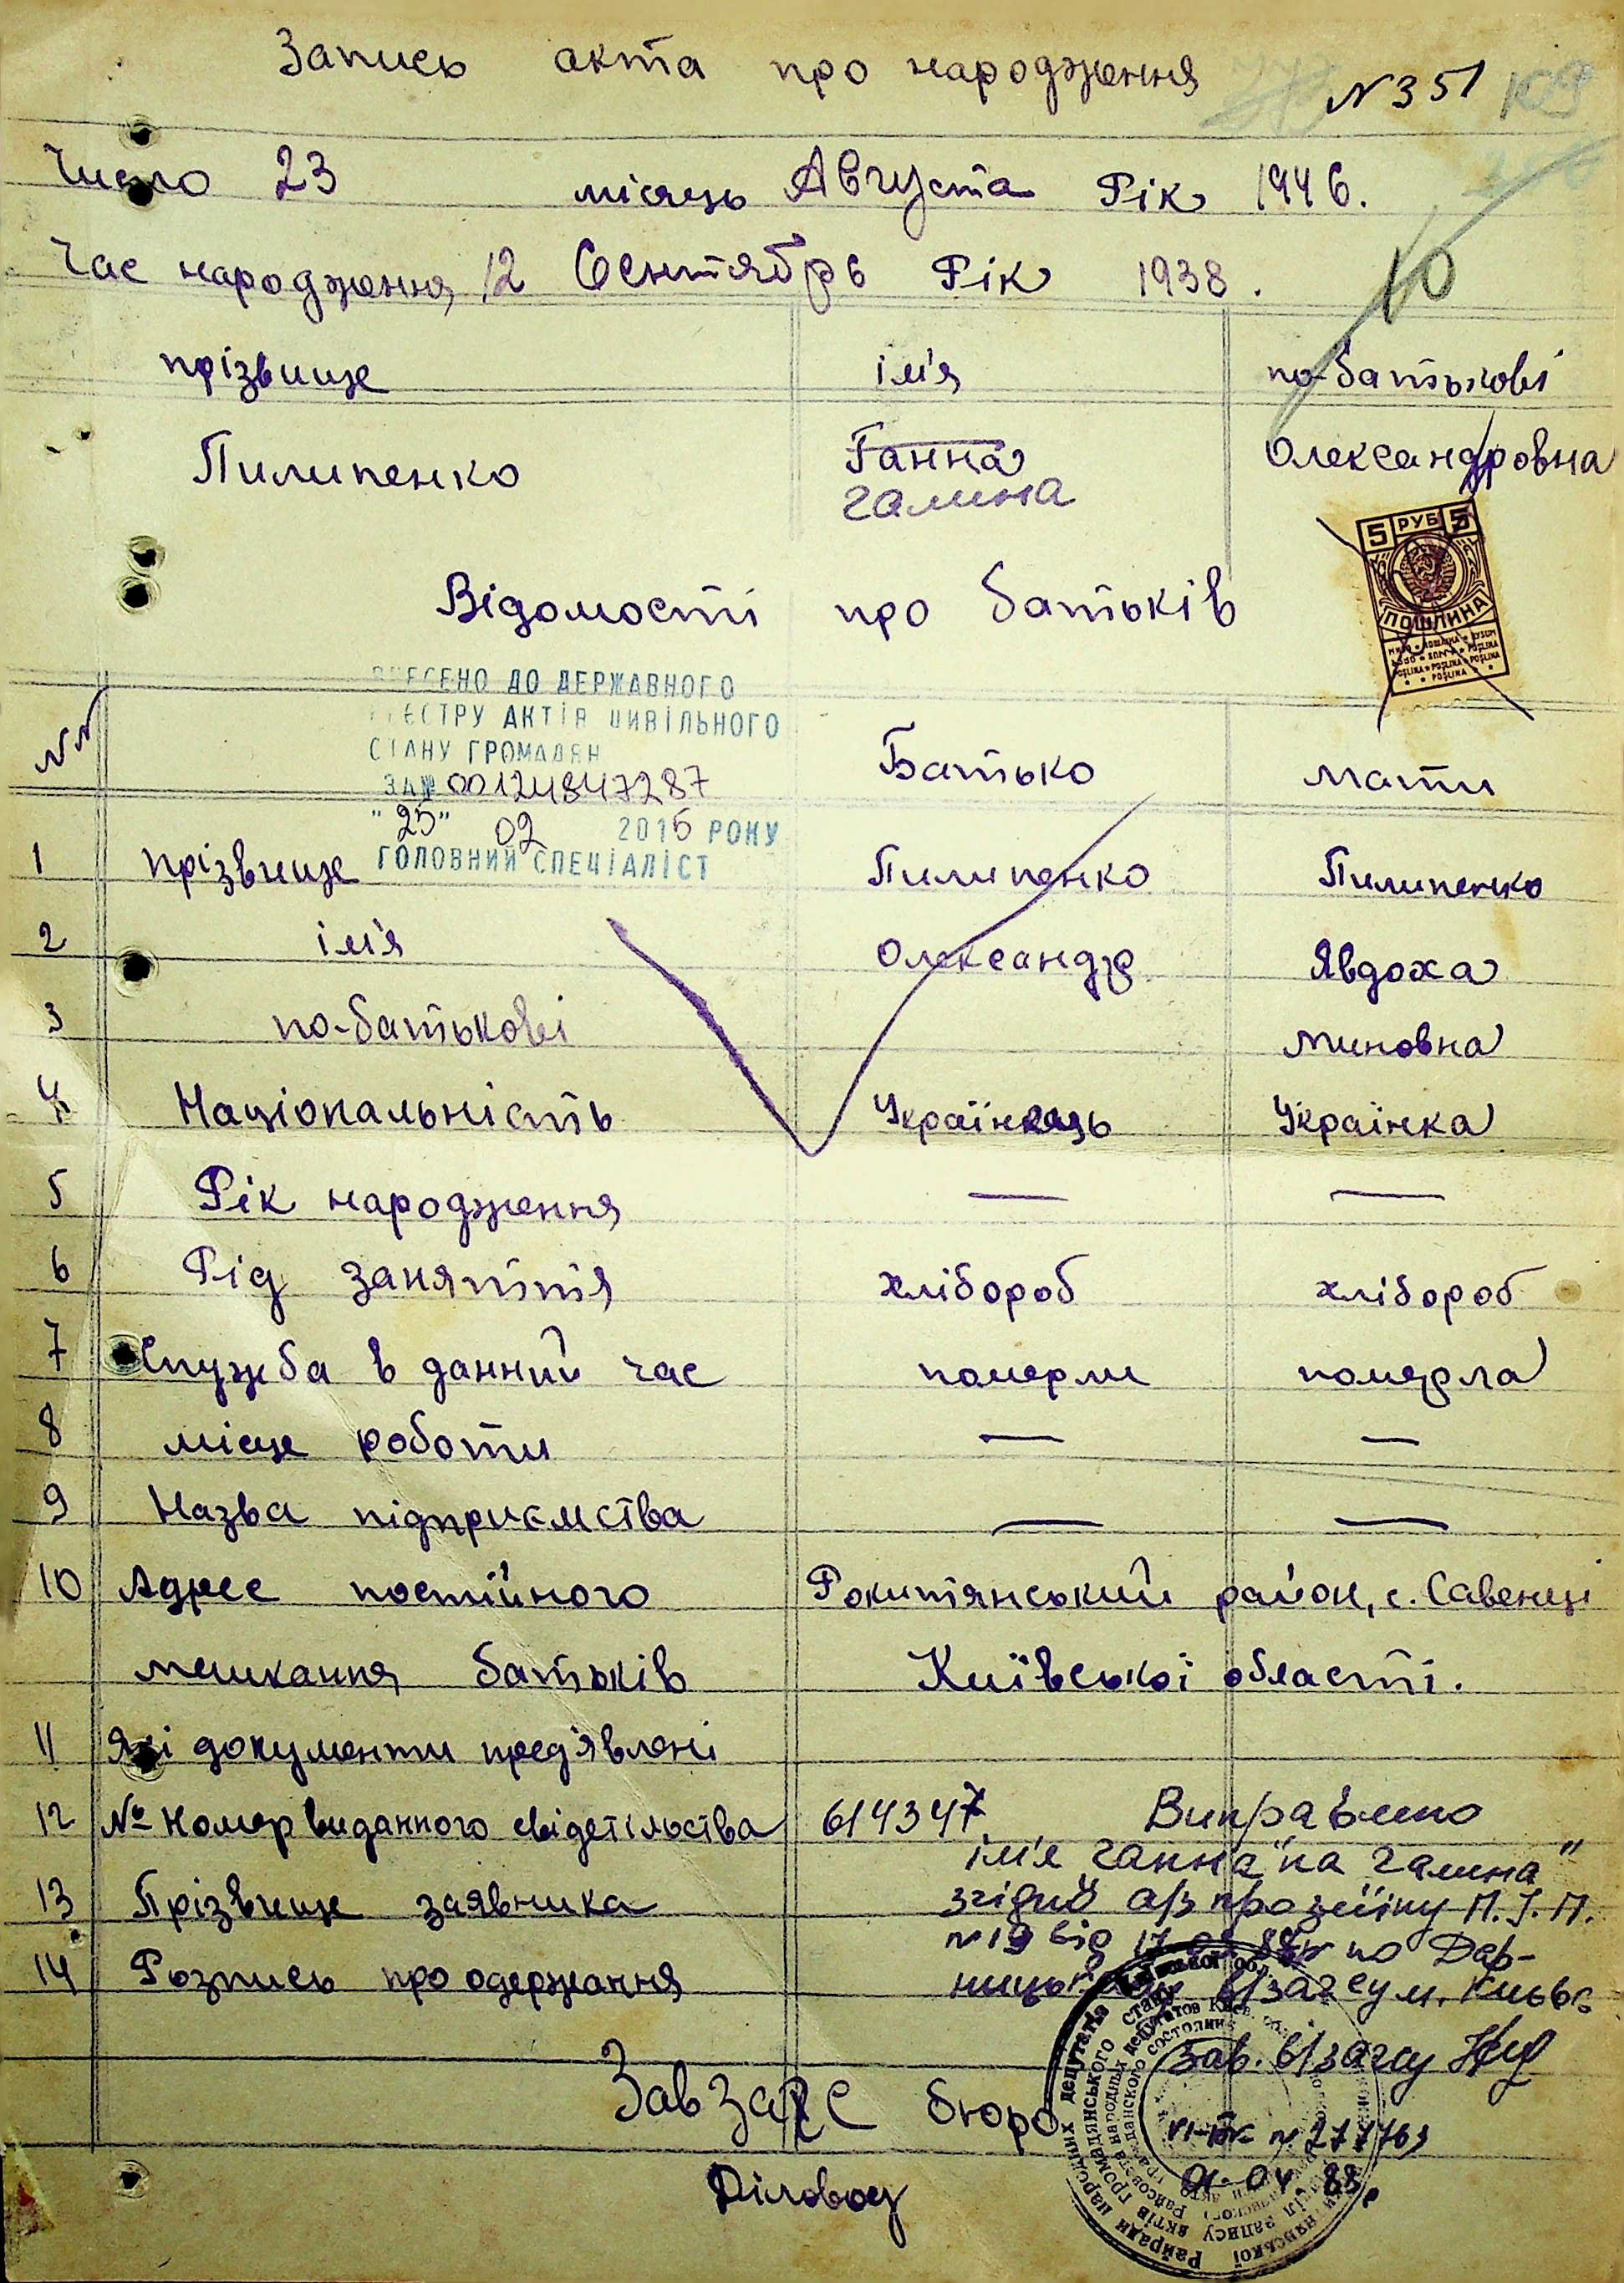 Запись акта про народження N 351
Число 23 місяць Августа Рік 1946.
Час народження 12 Сентябрь Рік 1938.
10
прізвище ім'я по-батькові
Пилипенко Ганна Олександровна
Галина
5 РУБ 5
ПОШЛИНА
Відомості про батьків
ВНЕСЕНО ДО ДЕРЖАВНОГО
РЕЄСТРУ АКТІВ ЦИВІЛЬНОГО
СТАНУ ГРОМАДЯН
ЗА № 00124847287
"25" 02 2015 РОКУ
ГОЛОВНИЙ СПЕЦІАЛІСТ
NN Батько мати
1 прізвище Пилипенко Пилипенко
2 ім'я Олександр Явдоха
3 по-батькові Миновна
4 Національність Українець Українка
5 Рік народження — —
6 Рід заняття хлібороб хлібороб
7 Служба в данний час померли померла
8 місце роботи — —
9 Назва підприємства — —
10 Адрес постійного Рокитянський район, с. Савенці
мешкання батьків Київської області.
11 Які документи пред'явлені
12 № Номер виданного свідетільства 614347 Виправлено
ім'я "Ганна" на "Галина"
13 Прізвище заявника згідно а/з про зміну П.І.П.
N 19 від 17 по Дар-
14 Розпись про одержання ницькому в/загсу м. Києва
Зав. в/загсу
Зав Загс бюро
VI-БК N 277763
01-04. 88р
Діловод